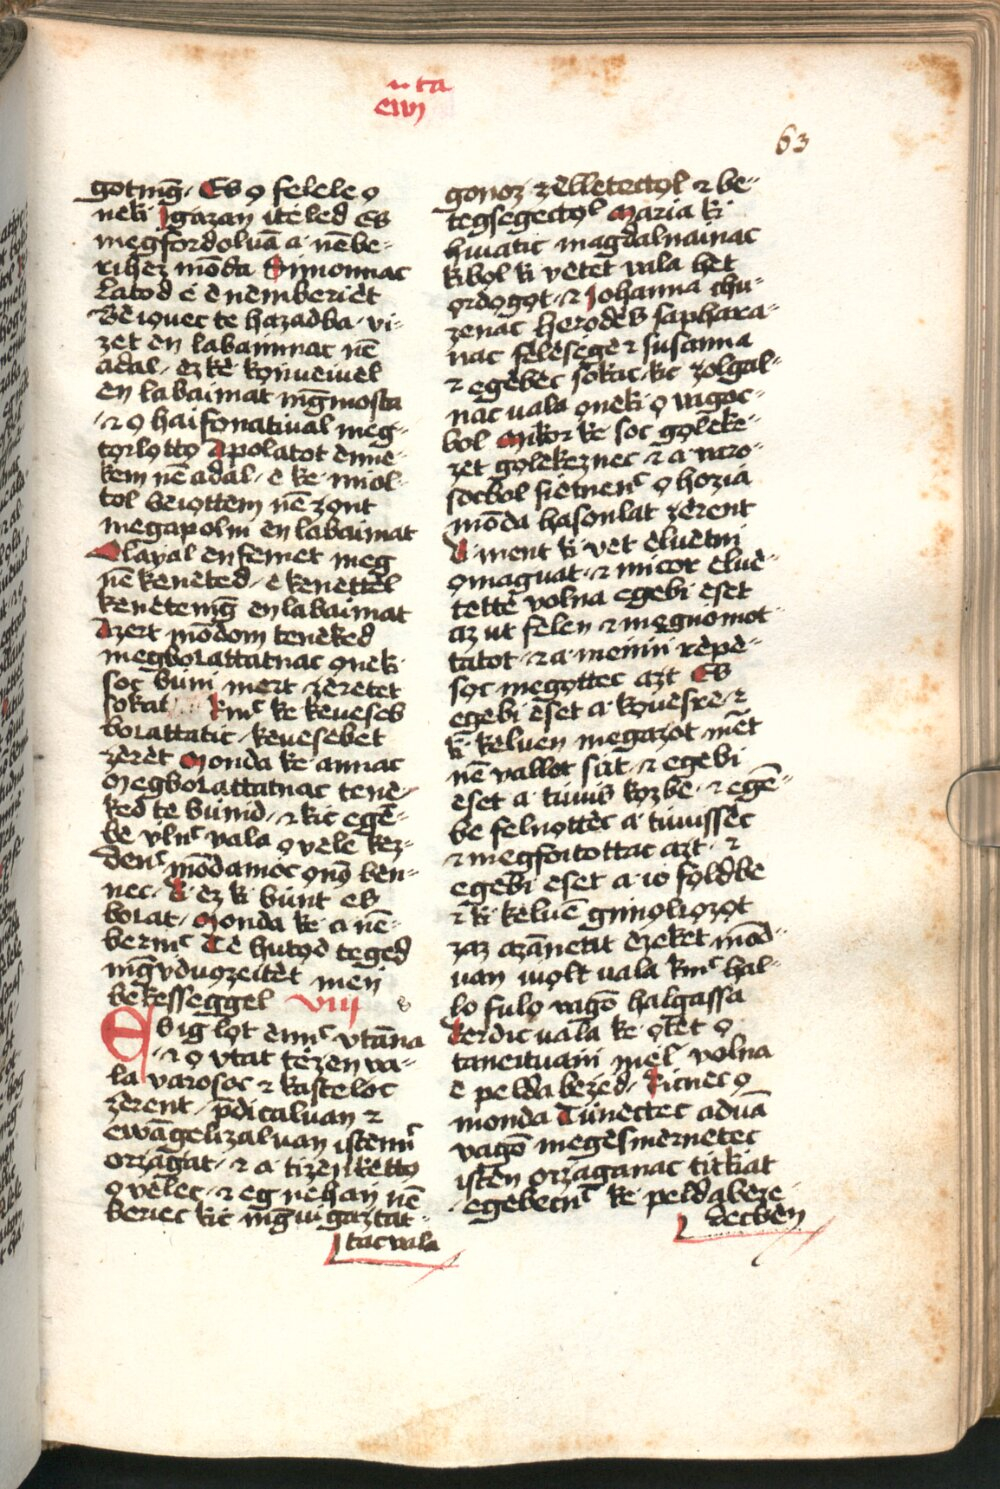 63
gotmg̃. Es o felele o
neki Igazan itéled Es
megfordoluã a nẽbe-
rihez mõda Simonnac
Latod é ė nemberièt
Bèiouec te hazadba vi-
zèt en labaimnac nẽ
adal. èz kè kọnueiuel
en labaimat mg̃mosta
⁊ o haiſonatiual meg-
torlotto Apolatot énne-
kem nẽ adal. è kè miol-
tol beiottem nẽ zọnt
megapolni en labaimat
Olayal en femet meg
nẽ keneted. è kenettèl
kenètemg̃ en labaimat
Azèrt mõdom tenèked
megborattatnac onèki
soc buni mert zèretet
sokat kinc kè keueseb
borattatic. keuesebet
zèrèt Monda kè annac
Megborattatnac tenè-
ked te bunid. ⁊ kic egè-
bè vlnc vala o vèle kez-
denc mõdamoc ọnọ ben-
nec. Ki èz ki bunt es
borat. Monda kè a nẽ-
bernc Tè hutọd teged
mg̃vduọzeitèt meñ
bekesseggel VIII
Es ig lọt ènnc vtãna
⁊ o vtat tèzen va-
la varosoc ⁊ kasteloc
zèrent. p̃dicaluan ⁊
ewãgelizaluan istenn̄
orzagat. ⁊ a tizenketto
o vèlec. ⁊ eg nèhañ nẽ
beriec kic mg̃vigaztat-
tac vala
gonoz zèlletectọl ⁊ be-
tegsegectọl Maria ki
hiuatic magdalnainac
kibọl ki vètèt vala hèt
ọrdọgọt. ⁊ Iohanna chu-
zènac Herodès saphara-
nac felesege ⁊ susanna
⁊ egebèc sokac. kic zolgal-
nac vala ọneki o vagoc-
bol Mikor kè soc gọlèke-
zèt gọlekeznec ⁊ a varo-
socbol sietnènc o hozia
mõda hasonlat zèrent
Kiment ki vèt èluetni
omaguat. ⁊ micor eluè-
tettè volna egebi eset
az ut felen ⁊ mègñomot-
tatot ⁊ a mènñi rèpè-
sọc megọttec azt Es
egebi èset a kọuèsre. ⁊
ki kèluen megazot mèt
nẽ vallot siit. ⁊ egebi
eset a tuuis kọzbe. ⁊ egẽ-
be felnọttèc a tuuissèc
⁊ megfoitottac azt. ⁊
egebi eset a io fọldbe
⁊ ki kèluẽ gimọlcọzọt
zaz azãnetit Èzeket mõd-
uan iuolt uala kinc hal-
lo fulo vagõ halgassa
Kerdic uala kè ọtèt o
taneituañi mel volna
è pelda bezed. Kicnec o
monda Tunectec aduã
vagõ megèsmernetec
istèn orzaganac titkiat
egebecnc kè peldabeze-
decben